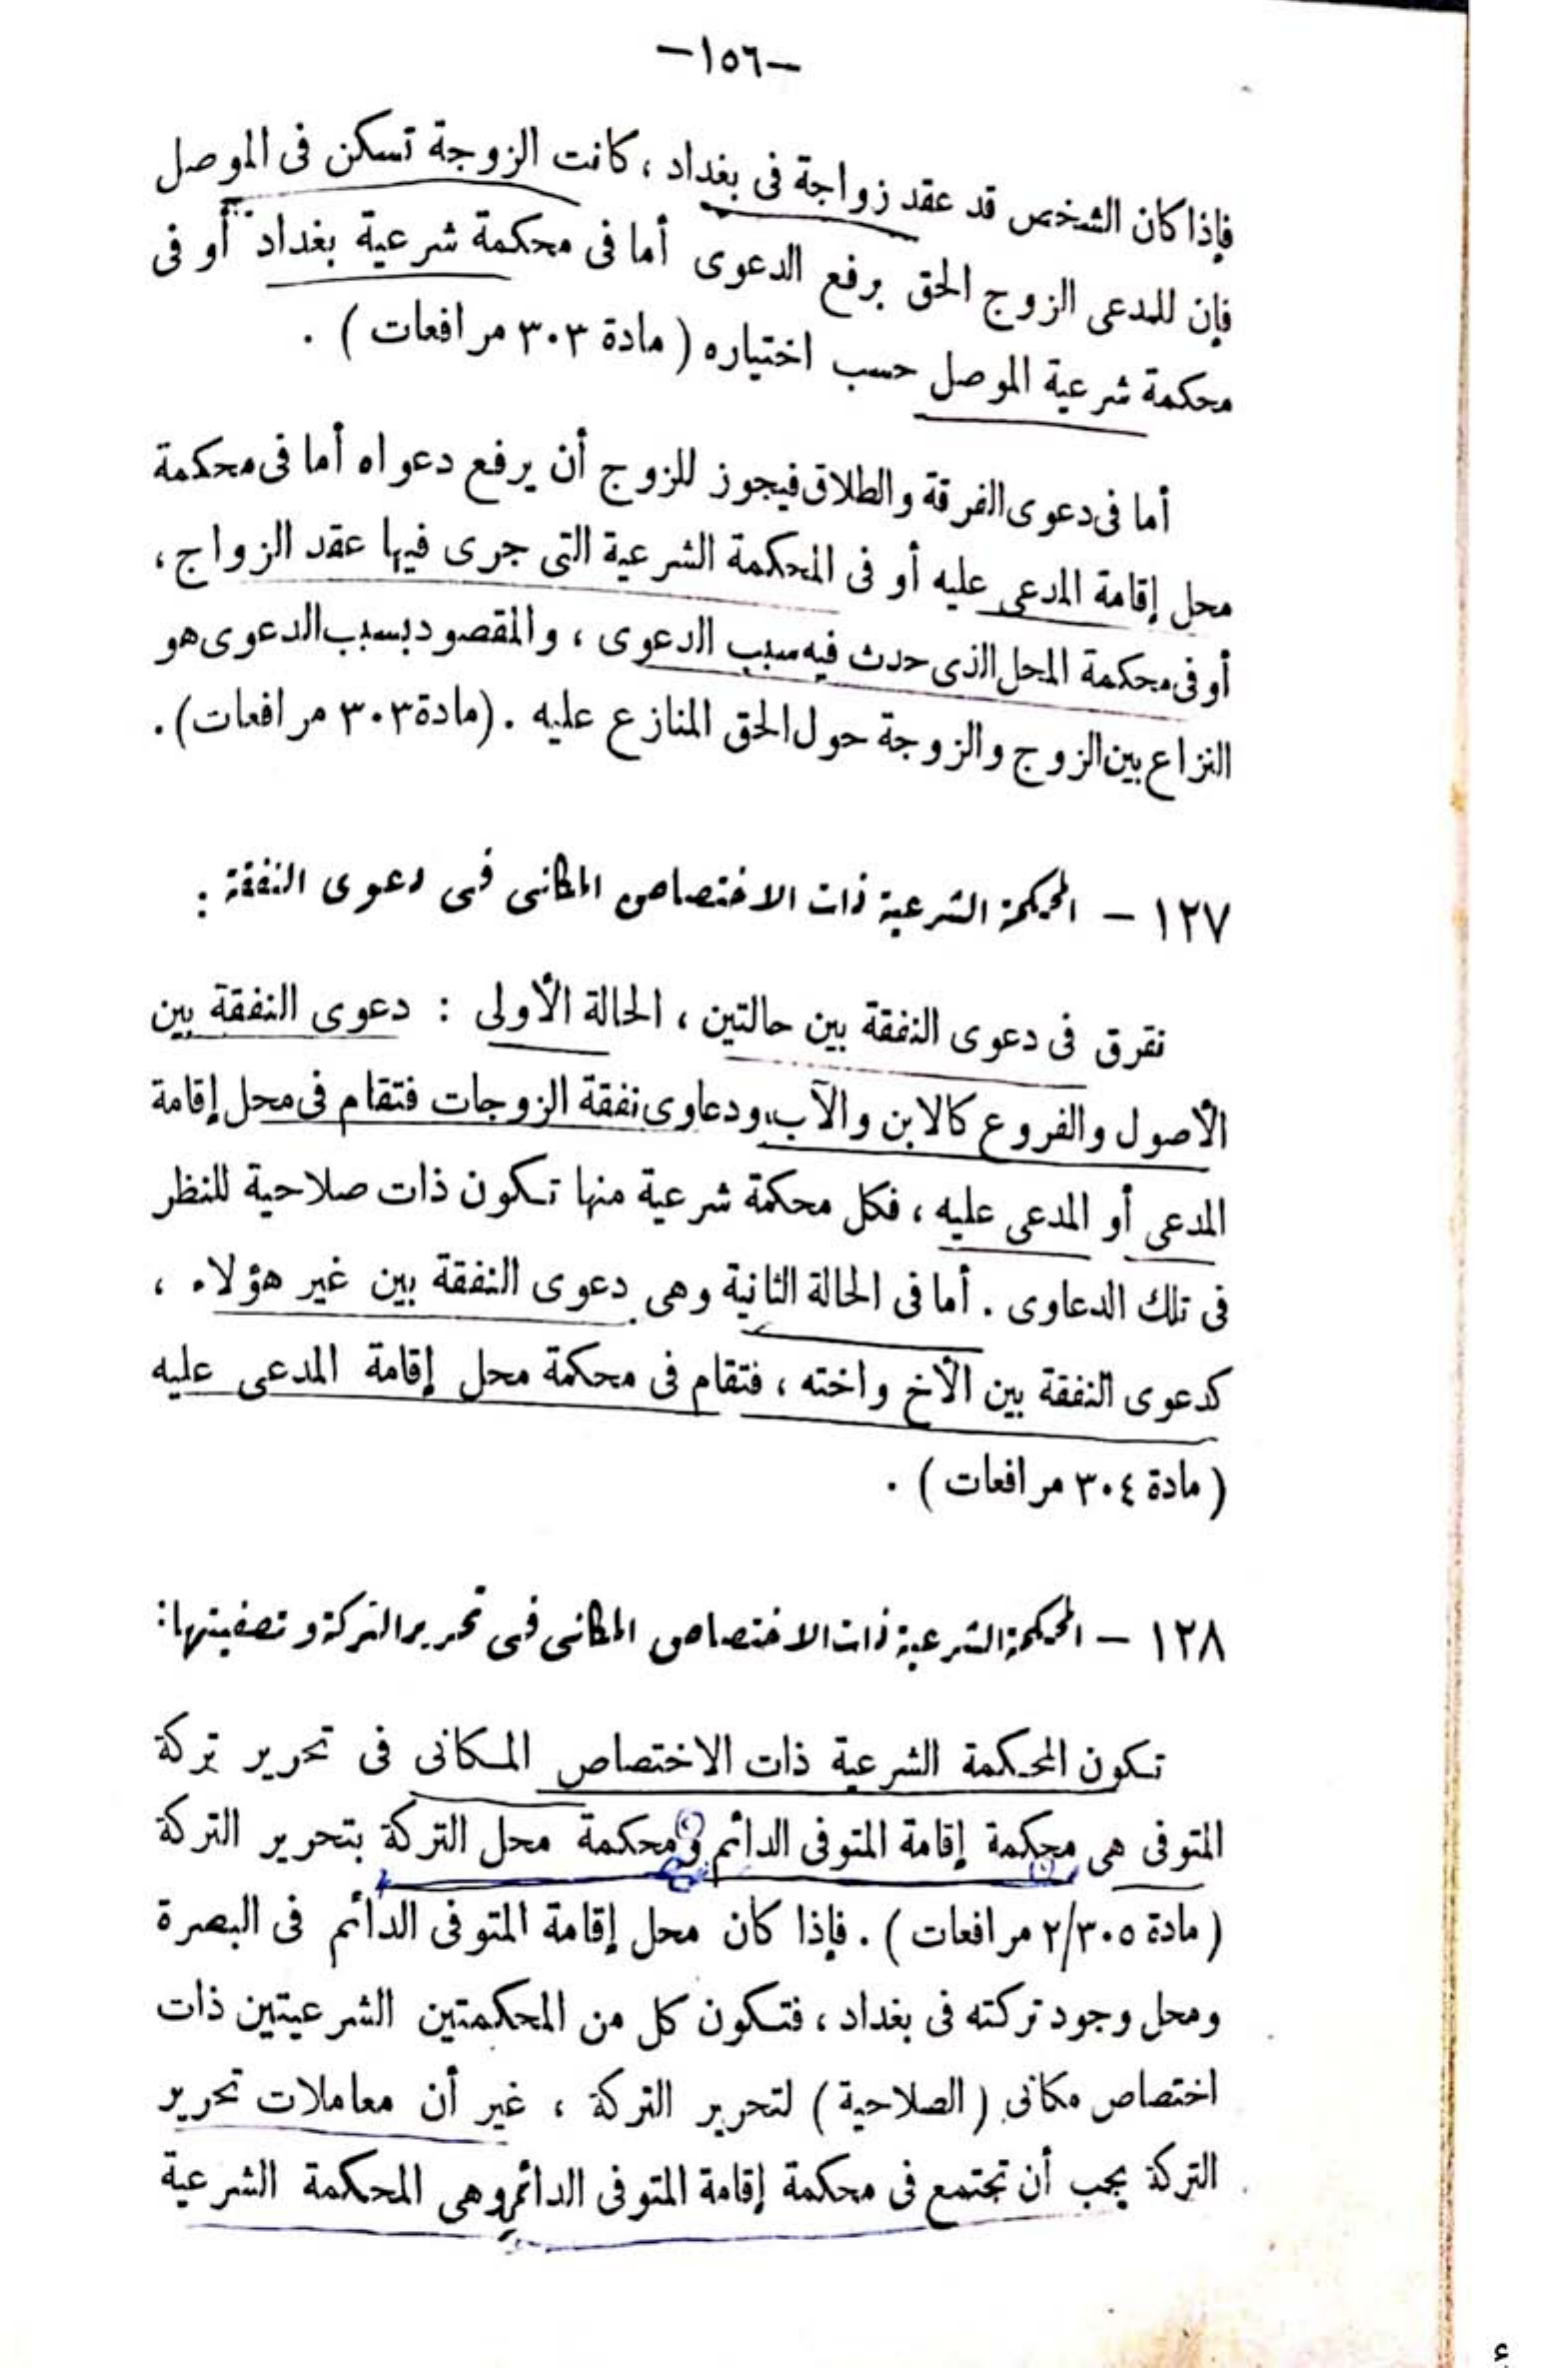 -١٥٦-
فإذا كان الشخص قد عقد زواجة فى بغداد ، كانت الزوجة تسكن فى الموصل
فإن للمدعى الزوج الحق برفع الدعوى أما فى محكمة شرعية بغداد أو فى
محكمة شرعية الموصل حسب اختياره ( مادة ٣٠٣ مرافعات ) .
أما فى دعوى الفرقة والطلاق فيجوز للزوج أن يرفع دعواه أما فى محكمة
محل إقامة المدعى عليه أو فى المحكمة الشرعية التى جرى فيها عقد الزواج ،
أو فى محكمة المحل الذى حدث فيه سبب الدعوى ، والمقصود بسبب الدعوى هو
النزاع بين الزوج والزوجة حول الحق المنازع عليه . (مادة ٣٠٣ مرافعات) .
١٢٧ - المحكمة الشرعية ذات الاختصاص المكانى فى دعوى النفقة :
نقرق فى دعوى النفقة بين حالتين ، الحالة الأولى : دعوى النفقة بين
الأصول والفروع كالابن والآب، ودعاوى نفقة الزوجات فتقام فى محل إقامة
المدعى أو المدعى عليه ، فكل محكمة شرعية منها تكون ذات صلاحية للنظر
فى تلك الدعاوى . أما فى الحالة الثانية وهى دعوى النفقة بين غير هؤلاء ،
كدعوى النفقة بين الأخ واخته ، فتقام فى محكمة محل إقامة المدعى عليه
( مادة ٣٠٤ مرافعات ) .
١٢٨ - المحكمة الشرعية ذات الاختصاص المكانى فى تحرير التركة وتصفيتها:
تكون المحكمة الشرعية ذات الاختصاص المكانى فى تحرير تركة
المتوفى هى محكمة إقامة المتوفى الدائم ومحكمة محل التركة بتحرير التركة
( مادة ٢/٣٠٥ مرافعات ) . فإذا كان محل إقامة المتوفى الدائم فى البصرة
ومحل وجود تركته فى بغداد ، فتكون كل من المحكمتين الشرعيتين ذات
اختصاص مكانى ( الصلاحية ) لتحرير التركة ، غير أن معاملات تحرير
التركة يجب أن تجتمع فى محكمة إقامة المتوفى الدائم وهى المحكمة الشرعية